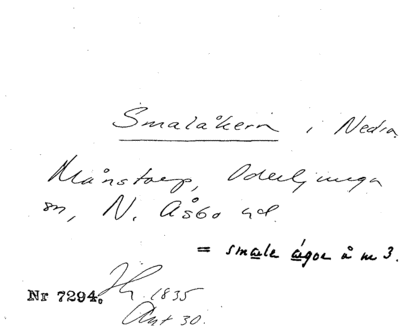 Smalåkern i Nedra
Månstorp, Oderljunga
sn, N. Åsbo hd.
= smale ágoe å m 3.
Nr 7294. 1835
Akt 30.